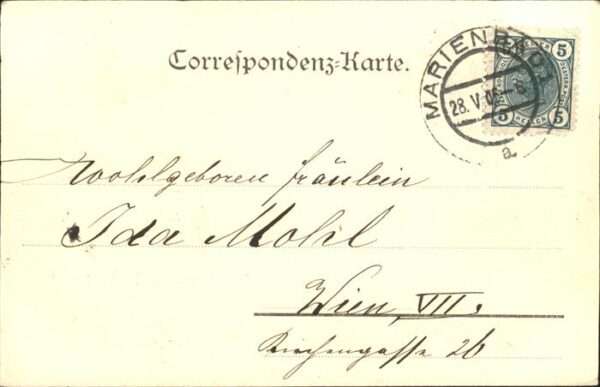 Correspondenz-Karte.
MARIENBAD 1
28. V. 05
a
5 5
5 5
Wohlgeboren Fräulein
Ida Mohl
Wien, VII.
Kirchengasse 26